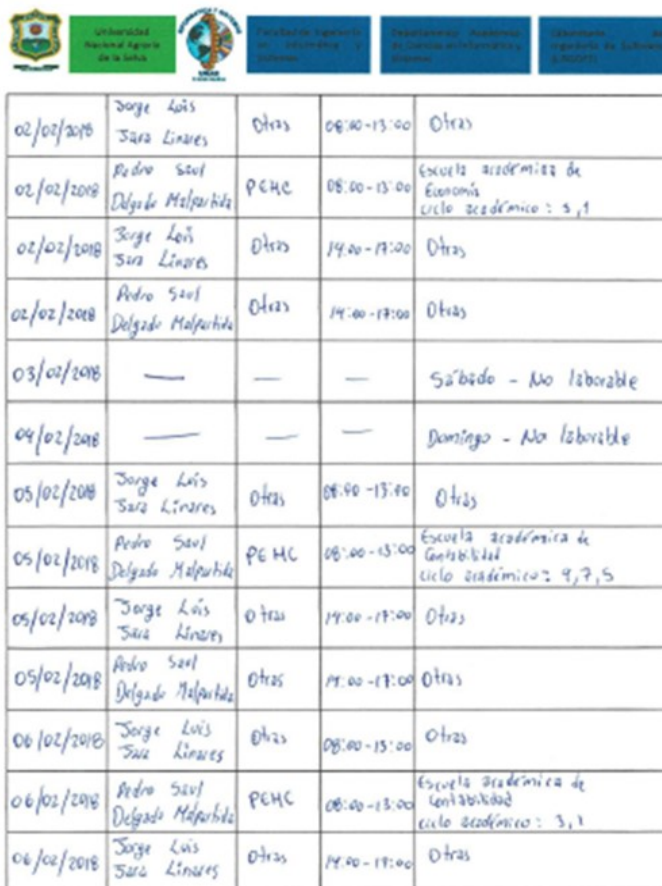 Universidad
Nacional Agraria
de la Selva
Facultad de Ingeniería
en Informática y
Sistemas
Departamento Académico
de Ciencias en Informática y
Sistemas
02/02/2018 Jorge Luis Jara Linares Otras 08:00-13:00 Otras
02/02/2018 Pedro Saul Delgado Malpartida PEHC 08:00-13:00 Escuela académica de Economía ciclo académico: 3,1
02/02/2018 Jorge Luis Jara Linares Otras 14:00-17:00 Otras
02/02/2018 Pedro Saul Delgado Malpartida Otras 14:00-17:00 Otras
03/02/2018 — — — Sábado - No laborable
04/02/2018 — — — Domingo - No laborable
05/02/2018 Jorge Luis Jara Linares Otras 08:00-13:00 Otras
05/02/2018 Pedro Saul Delgado Malpartida PEHC 08:00-13:00 Escuela académica de Contabilidad ciclo académico: 9,7,5
05/02/2018 Jorge Luis Jara Linares Otras 14:00-17:00 Otras
05/02/2018 Pedro Saul Delgado Malpartida Otras 14:00-17:00 Otras
06/02/2018 Jorge Luis Jara Linares Otras 08:00-13:00 Otras
06/02/2018 Pedro Saul Delgado Malpartida PEHC 08:00-13:00 Escuela académica de Contabilidad ciclo académico: 3,1
06/02/2018 Jorge Luis Jara Linares Otras 14:00-17:00 Otras